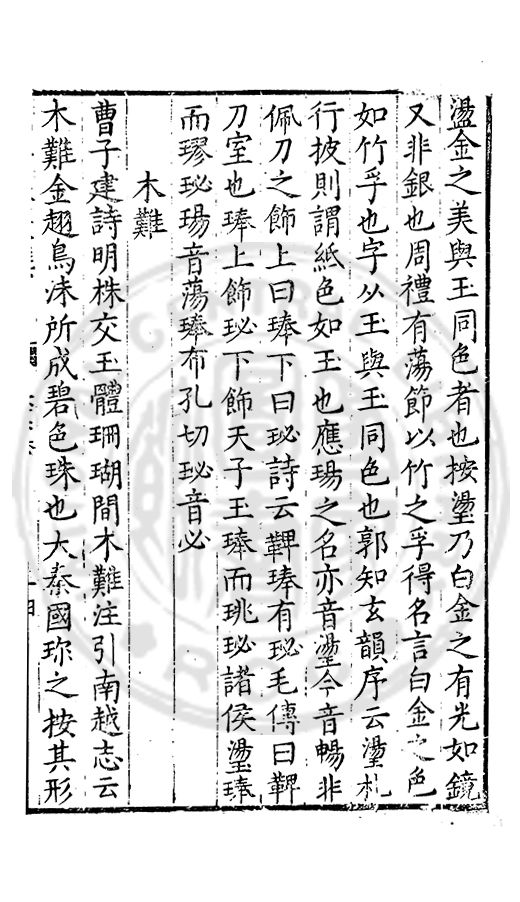 璗金之美與玉同色者也按璗乃白金之有光如鏡
又非銀也周禮有蕩節以竹之孚得名言白金之色
如竹孚也字从玉與玉同色也郭知玄韻序云璗札
行披則謂紙色如玉也應瑒之名亦音璗今音暢非
佩刀之飾上曰琫下曰珌詩云鞞琫有珌毛傳曰鞞
刀室也琫上飾珌下飾天子玉琫而珧珌諸侯璗琫
而璆珌瑒音蕩琫布孔切珌音必
木難
曹子建詩明株交玉體珊瑚間木難注引南越志云
木難金翅鳥沫所成碧色珠也大秦國珎之按其形